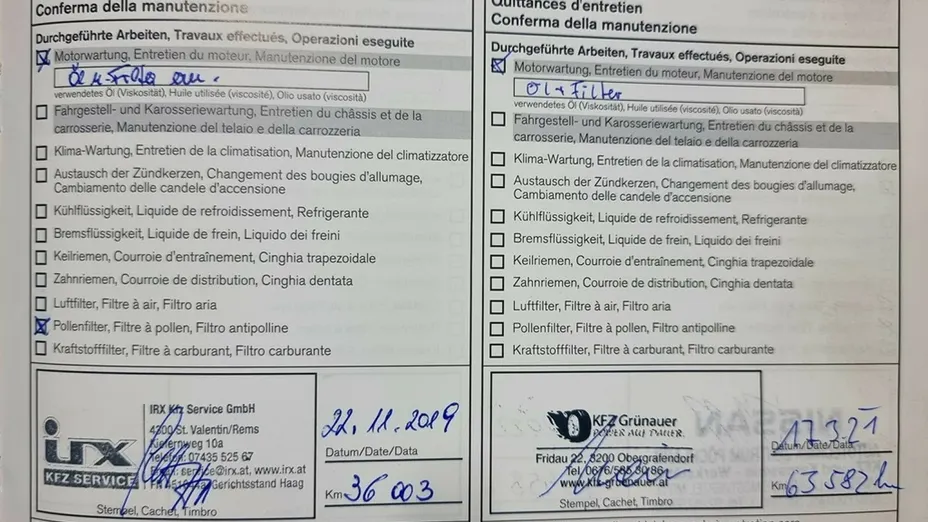 Conferma della manutenzione
Durchgeführte Arbeiten, Travaux effectués, Operazioni eseguite
Motorwartung, Entretien du moteur, Manutenzione del motore
verwendetes Öl (Viskosität), Huile utilisée (viscosité), Olio usato (viscosità)
Fahrgestell- und Karosseriewartung, Entretien du châssis et de la
carrosserie, Manutenzione del telaio e della carrozzeria
Klima-Wartung, Entretien de la climatisation, Manutenzione del climatizzatore
Austausch der Zündkerzen, Changement des bougies d'allumage,
Cambiamento delle candele d'accensione
Kühlflüssigkeit, Liquide de refroidissement, Refrigerante
Bremsflüssigkeit, Liquide de frein, Liquido dei freini
Keilriemen, Courroie d'entraînement, Cinghia trapezoidale
Zahnriemen, Courroie de distribution, Cinghia dentata
Luftfilter, Filtre à air, Filtro aria
Pollenfilter, Filtre à pollen, Filtro antipolline
Kraftstofffilter, Filtre à carburant, Filtro carburante
irx
KFZ SERVICE
IRX Kfz Service GmbH
4300 St. Valentin/Rems
Kiefernweg 10a
Telefon: 07435 525 67
Email: service@irx.at, www.irx.at
Gerichtsstand Haag
Stempel, Cachet, Timbro
22.11.2019
Datum/Date/Data
Km 36 003
Quittances d'entretien
Conferma della manutenzione
Durchgeführte Arbeiten, Travaux effectués, Operazioni eseguite
Motorwartung, Entretien du moteur, Manutenzione del motore
Öl + Filter
verwendetes Öl (Viskosität), Huile utilisée (viscosité), Olio usato (viscosità)
Fahrgestell- und Karosseriewartung, Entretien du châssis et de la
carrosserie, Manutenzione del telaio e della carrozzeria
Klima-Wartung, Entretien de la climatisation, Manutenzione del climatizzatore
Austausch der Zündkerzen, Changement des bougies d'allumage,
Cambiamento delle candele d'accensione
Kühlflüssigkeit, Liquide de refroidissement, Refrigerante
Bremsflüssigkeit, Liquide de frein, Liquido dei freini
Keilriemen, Courroie d'entraînement, Cinghia trapezoidale
Zahnriemen, Courroie de distribution, Cinghia dentata
Luftfilter, Filtre à air, Filtro aria
Pollenfilter, Filtre à pollen, Filtro antipolline
Kraftstofffilter, Filtre à carburant, Filtro carburante
KFZ Grünauer
POWER AUF DAUER.
Fridau 22, 3200 Obergrafendorf
Tel. 0676/585 30 86
www.kfz-gruenauer.at
Stempel, Cachet, Timbro
17.3.21
Datum/Date/Data
Km 63582 km